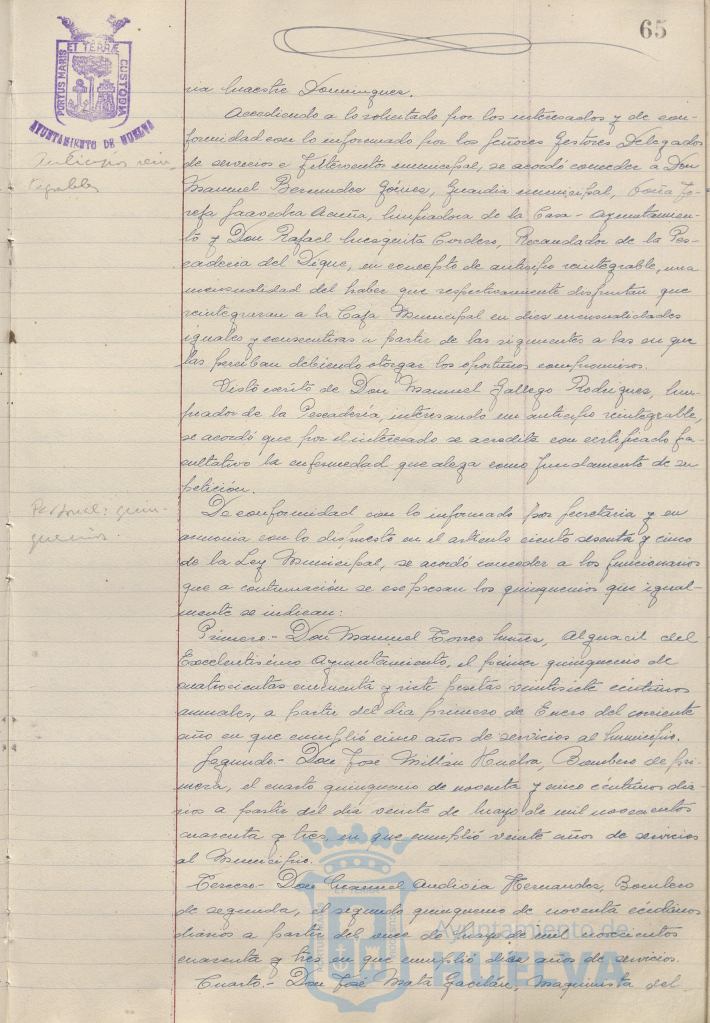 65
PORTUS MARIS ET TERRÆ CUSTODIA
AYUNTAMIENTO DE HUELVA
Anticipos rein-
tegrables
ria Maestre Dominguez.
Accediendo a lo solicitado por los interesados y de con-
formidad con lo informado por los señores Gestores Delegados
de servicios e Interventor municipal, se acordó conceder a Don
Manuel Bermudez Gómez, Guardia municipal, Doña Jo-
sefa Saavedra Acuña, limpiadora de la Casa-Ayuntamien-
to y Don Rafael Mesquita Cordero, Recaudador de la Pes-
caderia del Dique, en concepto de anticipo reintegrable, una
mensualidad del haber que respectivamente disfrutan que
reintegraran a la Caja Municipal en diez mensualidades
iguales y consecutivas a partir de las siguientes a las en que
las perciban debiendo otorgar los oportunos compromisos.
Visto escrito de Don Manuel Gallego Rodriguez, lim-
piador de la Pescaderia, interesando un anticipo reintegrable,
se acordó que por el interesado se acredite con certificado fa-
cultativo la enfermedad que alega como fundamento de su
petición.
Personal: quin-
quenios.
De conformidad con lo informado por Secretaria y en
armonia con lo dispuesto en el articulo ciento sesenta y cinco
de la Ley Municipal, se acordó conceder a los funcionarios
que a continuación se expresan los quinquenios que igual-
mente se indican:
Primero.- Don Manuel Torres Muñiz, Alguacil del
Excelentisimo Ayuntamiento, el primer quinquenio de
cuatrocientas cincuenta y siete pesetas veintisiete céntimos
anuales, a partir del dia primero de Enero del corriente
año en que cumplió cinco años de servicios al Municipio.
Segundo.- Don José Millán Huelva, Bombero de pri-
mera, el cuarto quinquenio de noventa y cinco céntimos dia-
rios a partir del dia veinte de Mayo de mil novecientos
cuarenta y tres, en que cumplió veinte años de servicios
al Municipio.
Tercero.- Don Manuel Andivia Hernandez, Bombero
de segunda, el segundo quinquenio de noventa céntimos
diarios a partir del once de Mayo de mil novecientos
cuarenta y tres en que cumplió diez años de servicios.
Cuarto.- Don José Mata Gavilán, Maquinista del
Ayuntamiento de
HUELVA